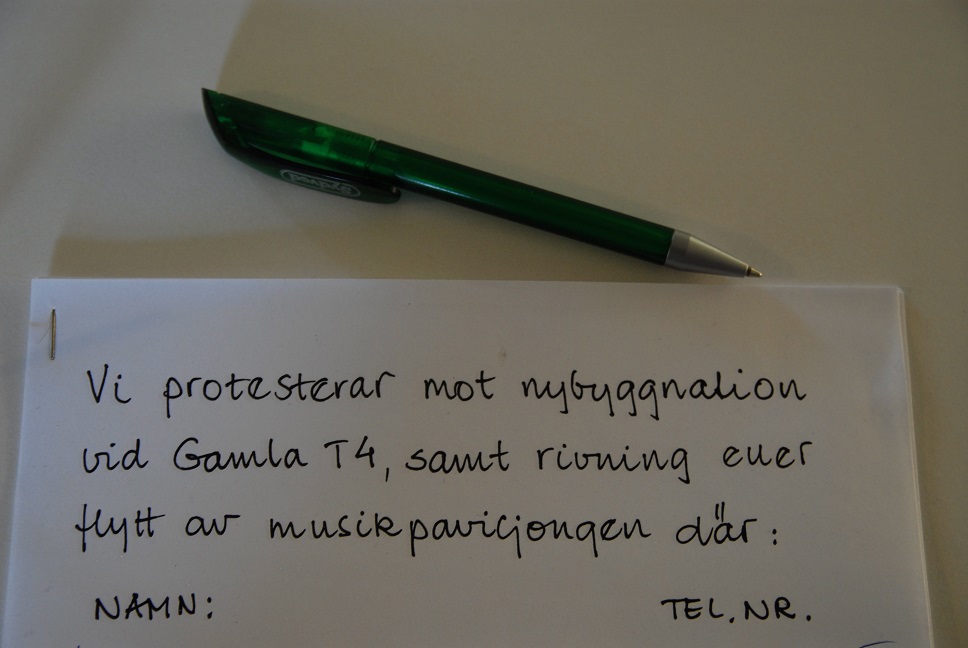 Vi protesterar mot nybyggnation
vid Gamla T4, samt rivning euer
flytt av musikpaviljongen där:
NAMN:
TEL.NR.